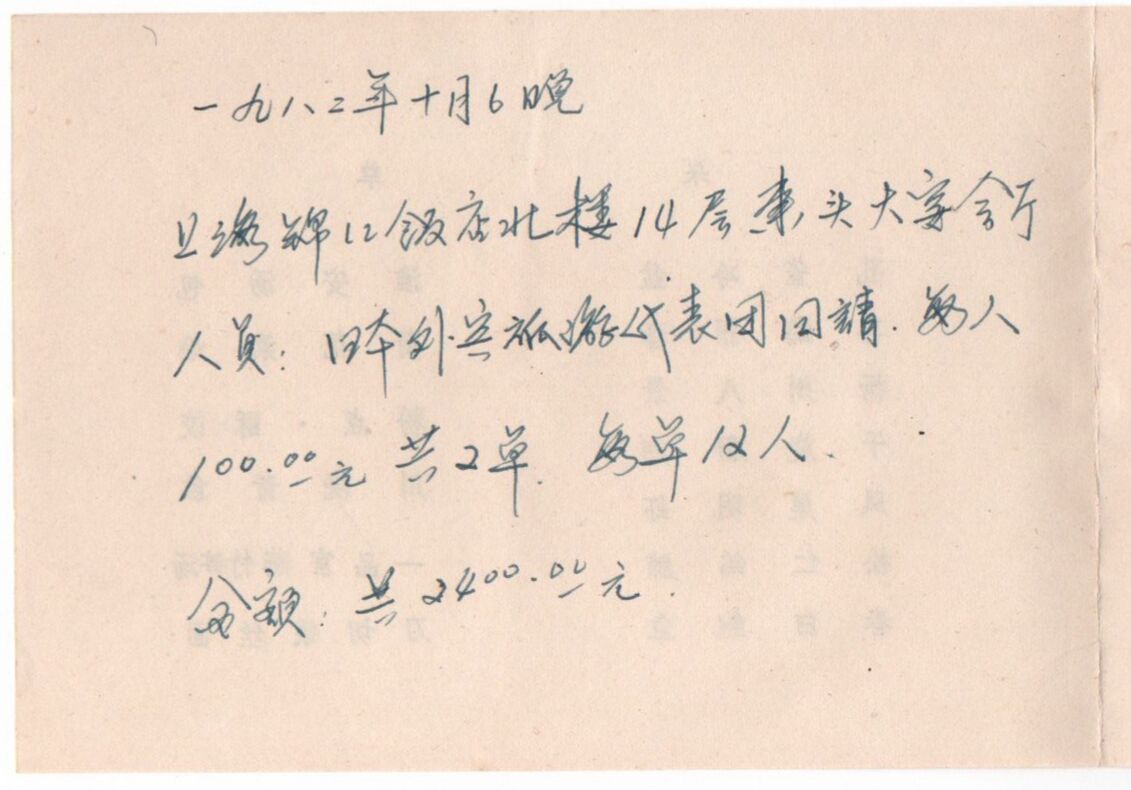 一九八二年十月6日晚
上海锦江饭店北楼14层东头大宴会厅
人员：日本外宾旅游代表团回請．每人
100.00元 共2草．每草12人．
金额：共2400.00元．